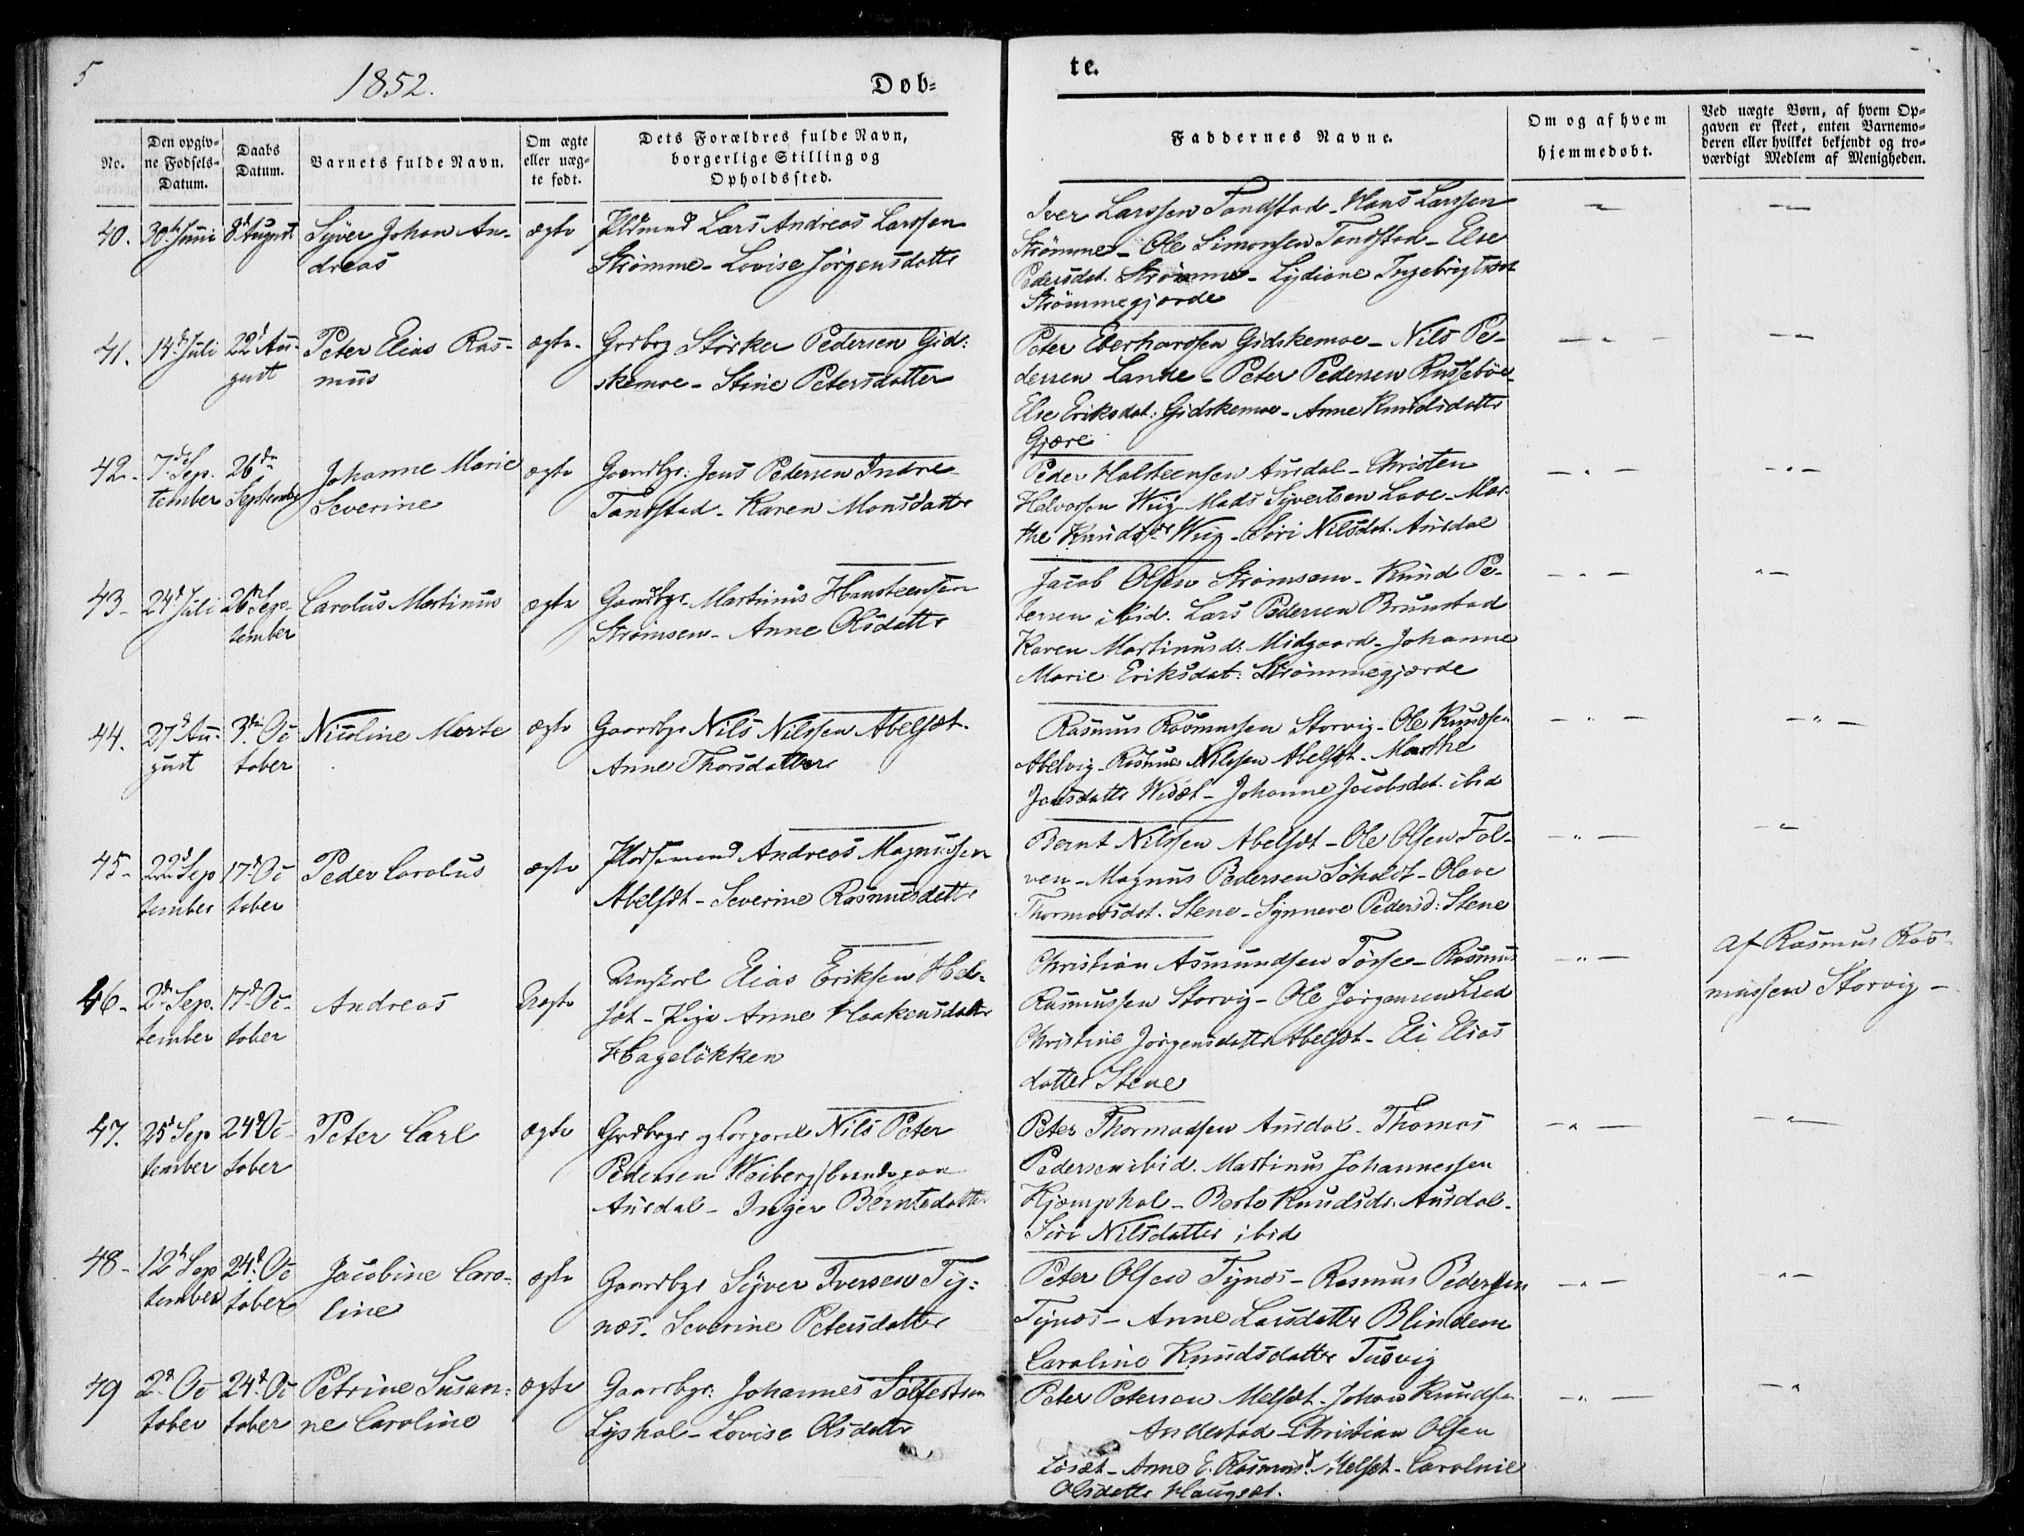 5
1852.
Døb=
te.
No.
Den opgiv=
ne Fødsels=
Datum.
Daabs
Datum.
Barnets fulde Navn.
Om ægte
eller uæg=
te født.
Dets Forældres fulde Navn,
borgerlige Stilling og
Opholdssted.
Faddernes Navne.
Om og af hvem
hjemmedøbt.
Ved uægte Børn, af hvem Op=
gaven er skeet, enten Barnemo=
deren eller hvilket bekjendt og tro=
værdigt Medlem af Menigheden.
40. 30te Juni 8d August Syver Johan An-
dreas
ægte
Lars Andreas Larssen
Strømme - Lovise Jørgensdatter
Iver Larssen Tandstad - Hans Larssen
Strømme - Ole Simonsen Tandstad - Else
Pedersdat. Strømme - Lydiane Ingebrigtsdt
Strømmegjærde
41. 14d Juli 22d Au-
gust
Peter Elias Ras-
mus
ægte
Grdbrg Størker Pedersen Gid:
skemoe - Stine Petersdatter
Peter Eberhardsen Gidskemoe - Nils Pe-
dersen Lanke - Peter Pedersen Russebøe
Else Eriksdat: Gidskemoe - Anne Knudsdatter
Gjære
42 - 7de Sep-
tember
26de
September
Johanne Marie
Severine
ægte
Gaardbgr: Jens Pedersen Indre
Tandstad - Karen Monsdatter
Peder Holsteensen Aursdal - Christen
Halvorsen Wiig - Mads Syvertsen Lade - Mar-
the Knudsdr Wiig - Siri Nilsdat. Aursdal
43 - 24d Juli 26d Sep-
tember
Carolus Martinus
ægte
Gaardbgr Martinus Hansteensen
Strømsem - Anne Olsdatter
Jacob Olsen Strømsem - Knud Pe-
tersen ibid. Lars Pedersen Brunstad
Karen Martinusd: Midgaard - Johanne
Marie Eriksdat: Strømmegjærde
44. 27d Au-
gust
3die Oc
tober
Nicoline Merte
ægte
Gaardbgr Nils Nilssen Abelsæt.
Anne Thorsdatter
Rasmus Rasmussen Storvig - Ole Knudsen
Abelvig - Rasmus Nilssen Abelsæt - Marthe
Jonsdatter Widet - Johanne Jacobsdat. ibid
45 - 22d Sep
tember
17d Oc
tober
Peder Carolus
ægte
Plodsemand Andreas Magnussen
Abelsæt - Severine Rasmusdatter
Bernt Nilssen Abelsæt - Ole Olsen Fol-
ven - Magnus Pedersen Søholdt - Olave
Thormodsdat. Stene - Synneve Pedersd: Stene
46 - 2d Sep.
tember
17d Oc-
tober
Andreas
Uægte
Ungkarl Elias Eriksen Hel-
sæt - Pige Anne Haakensdatter
Hageløkken
Christian Asmundsen Tørse - Rasmus
Rasmussen Storvig - Ole Jørgensen Lied
Christine Jørgensdatter Abelsæt - Eli Elias
datter Stene
Af Rasmus Ras-
mussen Storvig -
47. 25d Sep
tember
24d Oc
tober
Peter Carl
ægte
Grdbrgr og Corporal Nils Peter
Pedersen Weiberg boende paa
Aursdal - Inger Berntsdatter
Peter Thormodsen Aursdal - Thomas
Pedersen ibid. Martinus Johannessen
Kjæmphol - Berte Knudsdr. Aursdal -
Siri Nilsdatter ibid
48 - 12d Sep
tember
24d Oc
tober
Jacobine Caro-
line
ægte
Gaardbgr Syver Iversen Ty:
næs. Severine Petersdatter
Peter Olsen Tynæs - Rasmus Pedersen
Tynæs - Anne Larsdatter Blindem
Caroline Knudsdatter Tusvig
49 2d Oc
tober
24d Oc
tober
Petrine Susan:
ne Caroline
ægte
Gaardbgr: Johannes Sølfestsen
Lyshol - Lovise Olsdatter
Peter Petersen Melsæt - Johan Knudsen
Andestad - Christian Olsen
Løsæt - Anne E. Rasmusd. Melsæt - Caroline
Olsdatter Haugset.